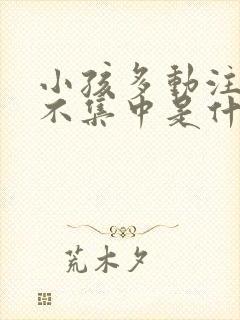 小孩多動注
不集中是什
荒木夕